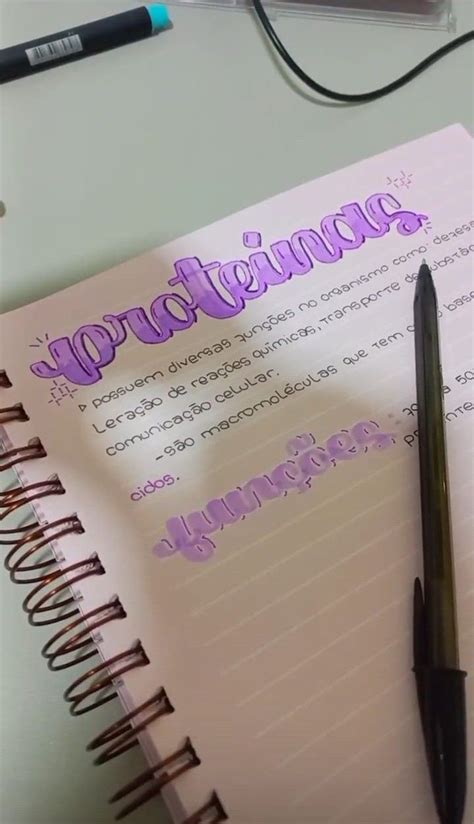 proteinas
▷ possuem diversas funções no organismo como: 
leração de reações químicas, transporte de
comunicação celular.
-são macromoléculas que tem
cidos.
funções: